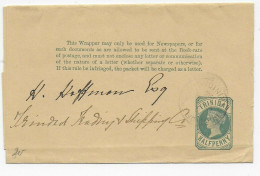 This Wrapper may only be used for Newspapers, or for
such documents as are allowed to be sent at the Book-rate
of postage, and must not enclose any letter or communication
of the nature of a letter (whether separate or otherwise).
If this rule be infringed, the packet will be charged as a letter.
TRINIDAD
H. Hoffman Esq
Trinidad Trading & Shipping Co
HALFPENNY